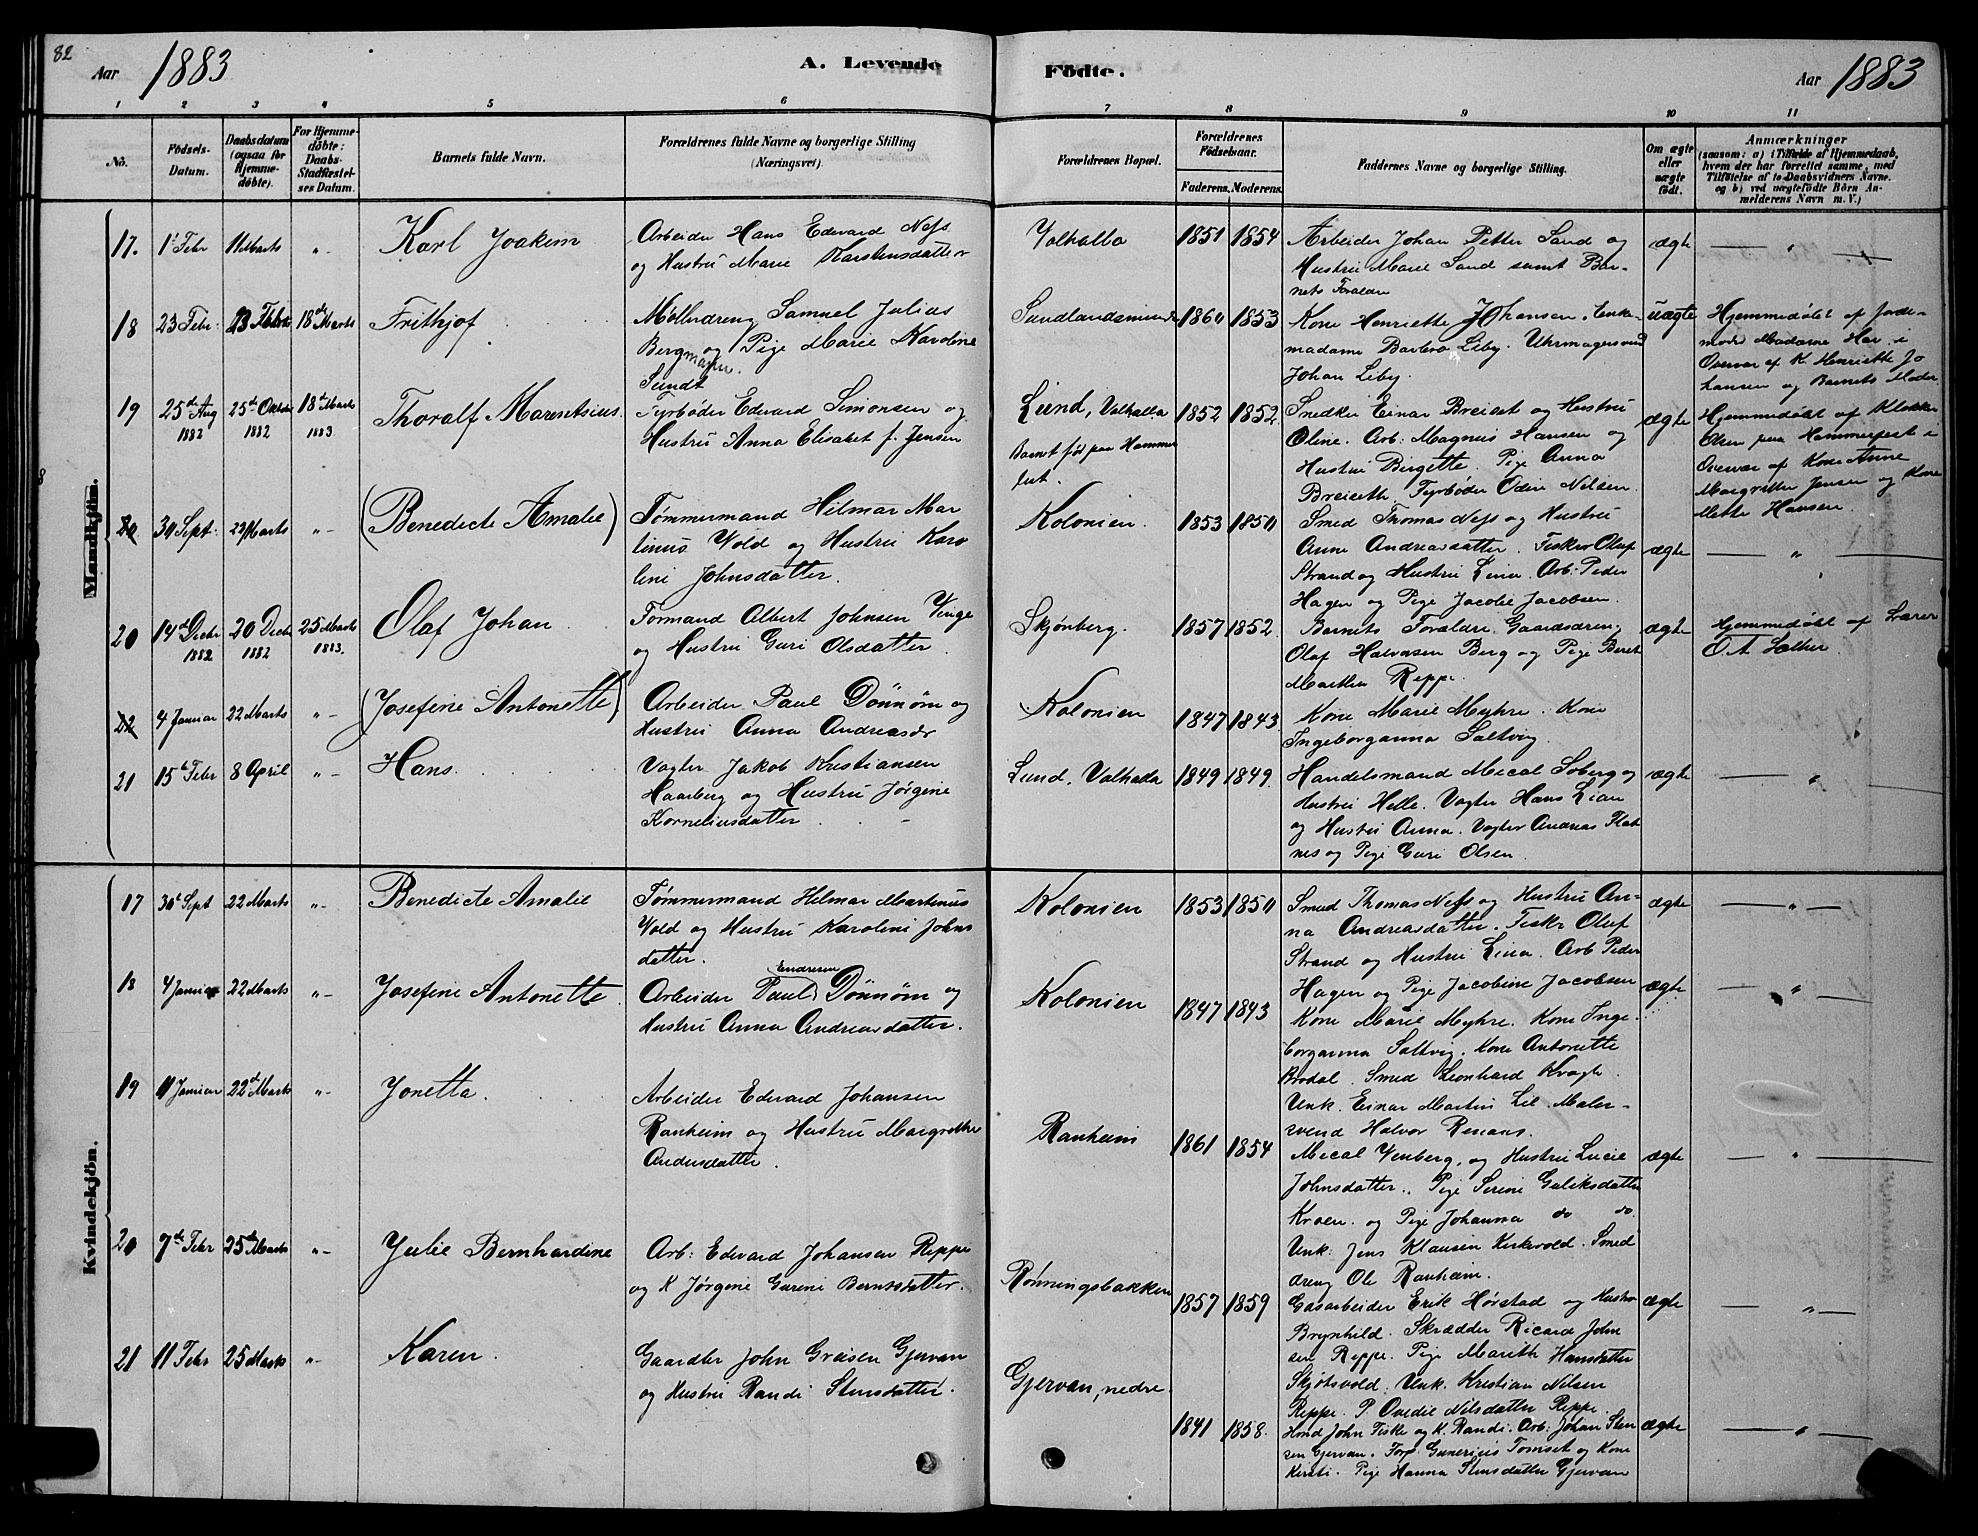 82
Aar 1883
A. Levende
Födte.
Aar 1883
1 2 3 4 5 6 7 8 9 10 11
No.
Födsels-
Datum.
Daabsdatum
(ogsaa for
Hjemme-
döbte).
For Hjemme-
döbte:
Daabs-
Stadfæstel-
ses Datum.
Barnets fulde Navn.
Forældrenes fulde Navne og borgerlige Stilling
(Næringsvei).
Forældrenes Bopæl.
Forældrenes
Födselsaar.
Faderens. Moderens.
Faddernes Navne og borgerlige Stilling.
Om ægte
eller
uægte
födt.
Anmærkninger
(saasom: a) i Tilfælde af Hjemmedaab,
hvem der har forrettet samme, med
Tilföielse af to Daabsvidners Navne.
og b) ved uægtefödte Börn An-
melderens Navn m. V.)
Mandkjön.
17. 1ste Febr 11 Marts " Karl Joakim
Arbeider Hans Edvard Nefs
og Hustru Marie Karstensdatter
Valhalla 1851 1854
Arbeider Johan Petter Sand og
Hustru Marie Sand samt Bar-
nets Forældre
ægte "
18 23 Febr. 23 Febr 18de Marts Frithjof.
Mølledreng Samuel Julius
Bergmann og Pige Marie Karoline
Sundt
Sundlandsminde 1860 1853
Kone Henriette Johansen. Enke-
madame Barbra Liby. Uhrmagersvend
Johan Liby.
uægte
Hjemmedøbt af Jorde-
moder Madame Har i
Overvær af K. Henriette Jo
hansen og Barnets Moder
19 25de Aug 1882 25de Oktober 1882 18de Marts 1883 Thoralf Marentsius.
Fyrbøder Edvard Simonsen og
Hustru Anna Elisabet f. Jensen
Lund, Valhalla
Barnet født paa Hammer
fest.
1852 1852.
Snedker Einar Breiset og Hustru
Oline. Arb: Magnus Hansen og
Hustru Birgette. Pige Anna
Breiseth. Fyrbøder Odin Nilsen.
ægte
Hjemmedøbt af Klokker
Olsen paa Hammerfest i
Overvær af Kone Anne
Margrithe Jensen og Kone
Mette Hansen.
20 30 Sept. 22 Marts " (Benedicte Amalie)
Tømmermand Hilmar Mar
tinus Wold og Hustru Karo
line Johnsdatter.
Kolonien. 1853 1850
Smed Thomas Nefs og Hustru
Anne Andreasdatter. Fisker Oluf
Strand og Hustru Lina. Arb: Peder
Hagen og Pige Jacobie Jacobsen.
ægte "
20 14de Decbr 1882 20 Decbr 1882 25 Marts 1883. Olaf Johan.
Formand Albert Johnsen Vinge
og Hustru Guri Olsdatter.
Skjønberg. 1857 1852.
Barnets Forældre. Gaardsdreng
Olaf Halvorsen Berg og Pige Beret
Martha Reppe.
ægte
Hjemmedøbt af Lærer
O. A. Sæther.
22 4 Januar 22 Marts " (Josefine Antonette)
Arbeider Paul Dönnöm og
Hustru Anna Andreasdr
Kolonien 1847 1843
Kone Marie Myhre. Kone
Ingeborganna Saltvig.
21 15de Febr 8 April " Hans.
Vagter Jakob Kristiansen
Haarberg og Hustru Jørgine
Korneliusdatter.
Lund. Valhalla 1849 1849.
Handelsmand Mical Soberg og
Hustru Helle. Vagter Hans Lian
og Hustru Anna. Vagter Andreas Flat
nes og Pige Guri Olsen.
ægte "
Kvindekjön.
17 30te Sept 22 Marts " Benedicte Amalie
Tømmermand Hilmar Martinus
Wold og Hustru Karoline Johns
datter.
Kolonien 1853 1850
Smed Thomas Nefs og Hustru An-
na Andreasdatter. Fisker Oluf
Strand og Hustru Lina. Arb Peder
Hagen og Pige Jacobine Jacobsen
ægte "
18 4 Januar 22 Marts " Josefine Antonette.
Arbeider Paul Endresen Dönnöm og
Hustru Anna Andreasdatter.
Kolonien 1847 1843
Kone Marie Myhre. Kone Inge-
borganna Saltvig. Kone Antonette
Brodal. Smed Leonhard Kragh.
Unk. Einar Martin Lil. Maler-
svend Halvor Renaas.
ægte "
19 11 Januar 22de Marts " Jonetta.
Arbeider Edvard Johansen
Ranheim og Hustru Margrethe
Andersdatter.
Ranheim 1861 1854
Mical Venberg, og Hustru Lucie
Johnsdatter. Pige Serine Guliksdatter
Kroen. og Pige Johanna do do.
Unk: Jens Klausen Kirkvold. Smed
dreng Ole Ranheim.
ægte "
20 7de Febr 25de Marts " Julie Bernhardine
Arb: Edvard Johansen Reppe
og K Jørgine Gurine Berntsdatter.
Rønningsbakken 1857 1859
Gasarbeider Erik Hørstad og Hustru
Brynhild. Skrædder Ricard John
sen Reppe. Pige Marith Hansdatter
Skjøtsvold. Unk. Kristian Nilsen
Reppe. P. Ovedie Nilsdatter Reppe.
ægte "
21 11 Febr 25 Marts " Karen.
Gaardbr John Greisen Gjervan
og Hustru Randi Stensdatter.
Gjervan, nedre. 1841 1858.
Hmd John Fiske og K. Randi. Arb: Johan Sten
sen Gjervan. Forp. Gunerius Tomset og Kone
Kirsti. Pige Hanna Stensdatter Gjervan
ægte "